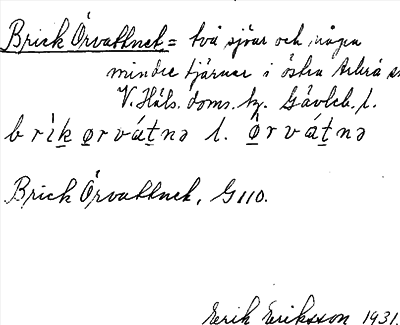 Brick Örvattnet = två sjöar och någon
mindre tjärnar i östra Arbrå sn
V. Häls. doms. hg. Gävleb. l.
b r ì k ø r v á t n ə l. ø̂ r v á t n ə
Brick Örvattnet, G 110.
Erik Eriksson 1931.